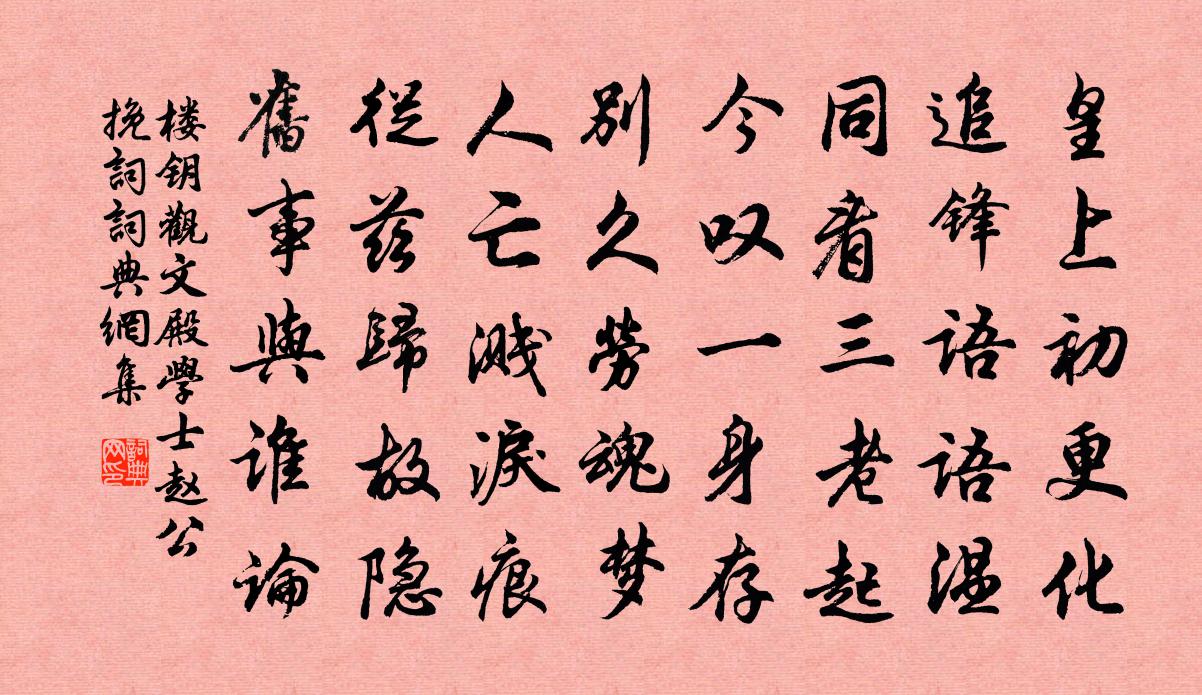 皇上初更化
追锋语语温
同看三老起
今叹一身存
别久劳魂梦
人亡溅泪痕
从兹归故隐
旧事与谁论
楼钥观文殿学士赵公
挽词词典网集
词典网印